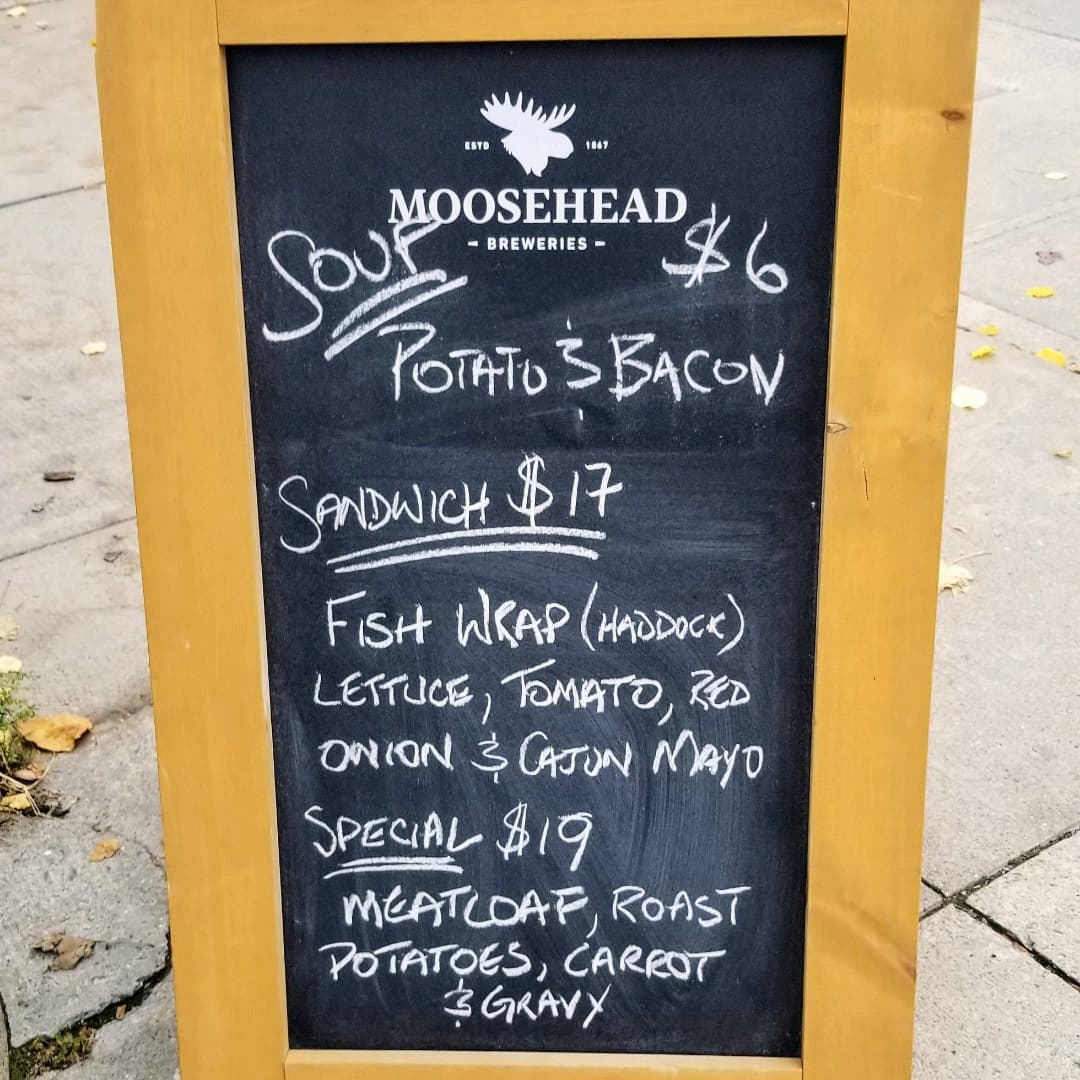 ESTD 1867
MOOSEHEAD
- BREWERIES -
SOUP $6
POTATO & BACON
SANDWICH $17
FISH WRAP (HADDOCK)
LETTUCE, TOMATO, RED
ONION & CAJUN MAYO
SPECIAL $19
MEATLOAF, ROAST
POTATOES, CARROT
& GRAVY